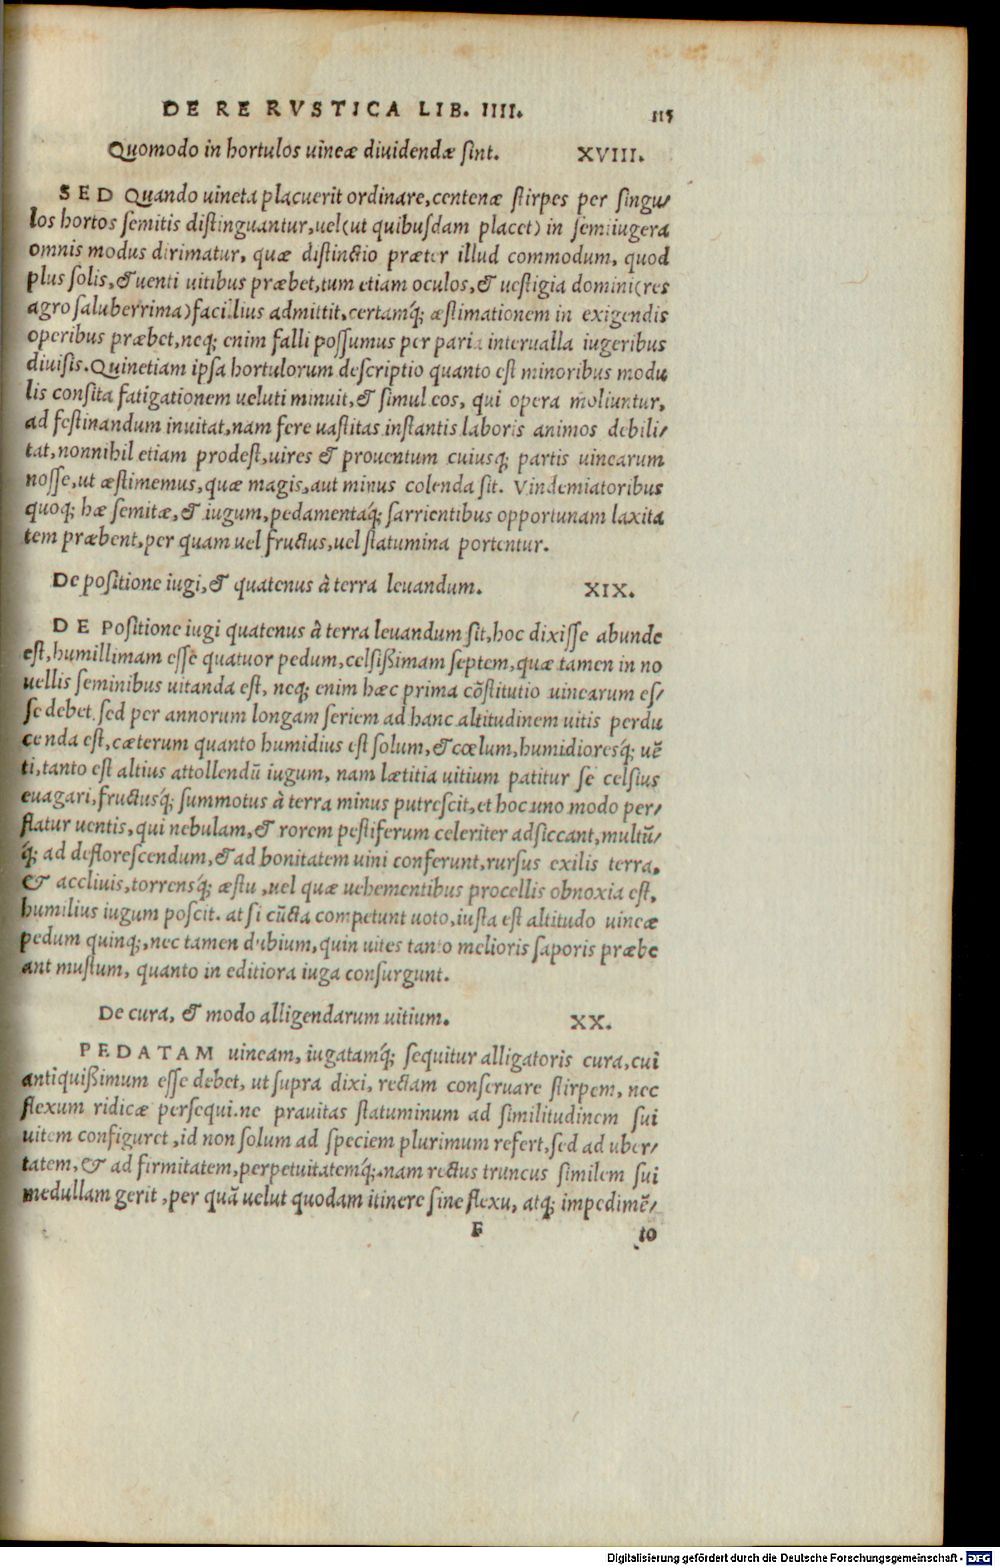 DE RE RVSTICA LIB. IIII. 115
Quomodo in hortulos uineæ diuidendæ sint. XVIII.
SED Quando uineta placuerit ordinare, centenæ stirpes per singu/
los hortos semitis distinguantur, uel (ut quibusdam placet) in semiiugera
omnis modus dirimatur, quæ distinctio præter illud commodum, quod
plus solis, & uenti uitibus præbet, tum etiam oculos, & uestigia domini (res
agro saluberrima) facilius admittit, certamq́; æstimationem in exigendis
operibus præbet, neq; enim falli possumus per paria interualla iugeribus
diuisis. Quinetiam ipsa hortulorum descriptio quanto est minoribus modu
lis consita fatigationem ueluti minuit, & simul eos, qui opera moliuntur,
ad festinandum inuitat, nam fere uastitas instantis laboris animos debili/
tat, nonnihil etiam prodest, uires & prouentum cuiusq; partis uinearum
nosse, ut æstimemus, quæ magis, aut minus colenda sit. Vindemiatoribus
quoq; hæ semitæ, & iugum, pedamentaq́; sarrientibus opportunam laxita
tem præbent, per quam uel fructus, uel statumina portentur.
De positione iugi, & quatenus à terra leuandum. XIX.
DE Positione iugi quatenus à terra leuandum sit, hoc dixisse abunde
est, humillimam esse quatuor pedum, celsißimam septem, quæ tamen in no
uellis seminibus uitanda est, neq; enim hæc prima cõstitutio uinearum es/
se debet. sed per annorum longam seriem ad hanc altitudinem uitis perdu
cenda est, cæterum quanto humidius est solum, & cœlum, humidioresq́; uẽ
ti, tanto est altius attollendũ iugum, nam lætitia uitium patitur se celsius
euagari, fructusq́; summotus à terra minus putrescit, et hoc uno modo per/
flatur uentis, qui nebulam, & rorem pestiferum celeriter adsiccant, multũ/
q́; ad deflorescendum, & ad bonitatem uini conferunt, rursus exilis terra,
& accliuis, torrensq́; æstu, uel quæ uehementibus procellis obnoxia est,
humilius iugum poscit. at si cũcta competunt uoto, iusta est altitudo uineæ
pedum quinq;, nec tamen dubium, quin uites tanto melioris saporis præbe
ant mustum, quanto in editiora iuga consurgunt.
De cura, & modo alligendarum uitium. XX.
PEDATAM uineam, iugatamq́; sequitur alligatoris cura, cui
antiquißimum esse debet, ut supra dixi, rectam conseruare stirpem, nec
flexum ridicæ persequi. ne prauitas statuminum ad similitudinem sui
uitem configuret, id non solum ad speciem plurimum refert, sed ad uber/
tatem, & ad firmitatem, perpetuitatemq́;. nam rectus truncus similem sui
medullam gerit, per quã uelut quodam itinere sine flexu, atq; impedimẽ/
F to
Digitalisierung gefördert durch die Deutsche Forschungsgemeinschaft - DFG